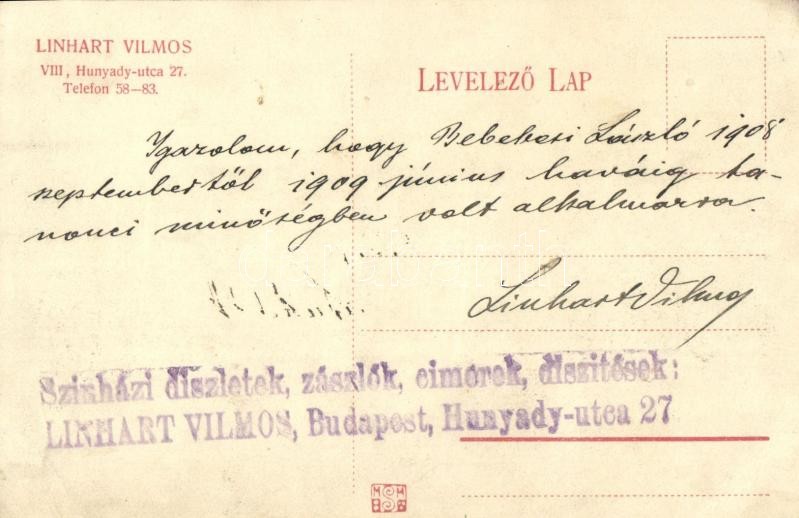 LINHART VILMOS
VIII, Hunyady-utca 27.
Telefon 58—83.
LEVELEZŐ LAP
Igazolom, hogy Bebekesi László 1908
szeptembertől 1909 június haváig ta-
nonci minőségben volt alkalmazva.
Linhart Vilmos
Szinházi diszletek, zászlók, cimerek, diszitések:
LINHART VILMOS, Budapest, Hunyady-utca 27